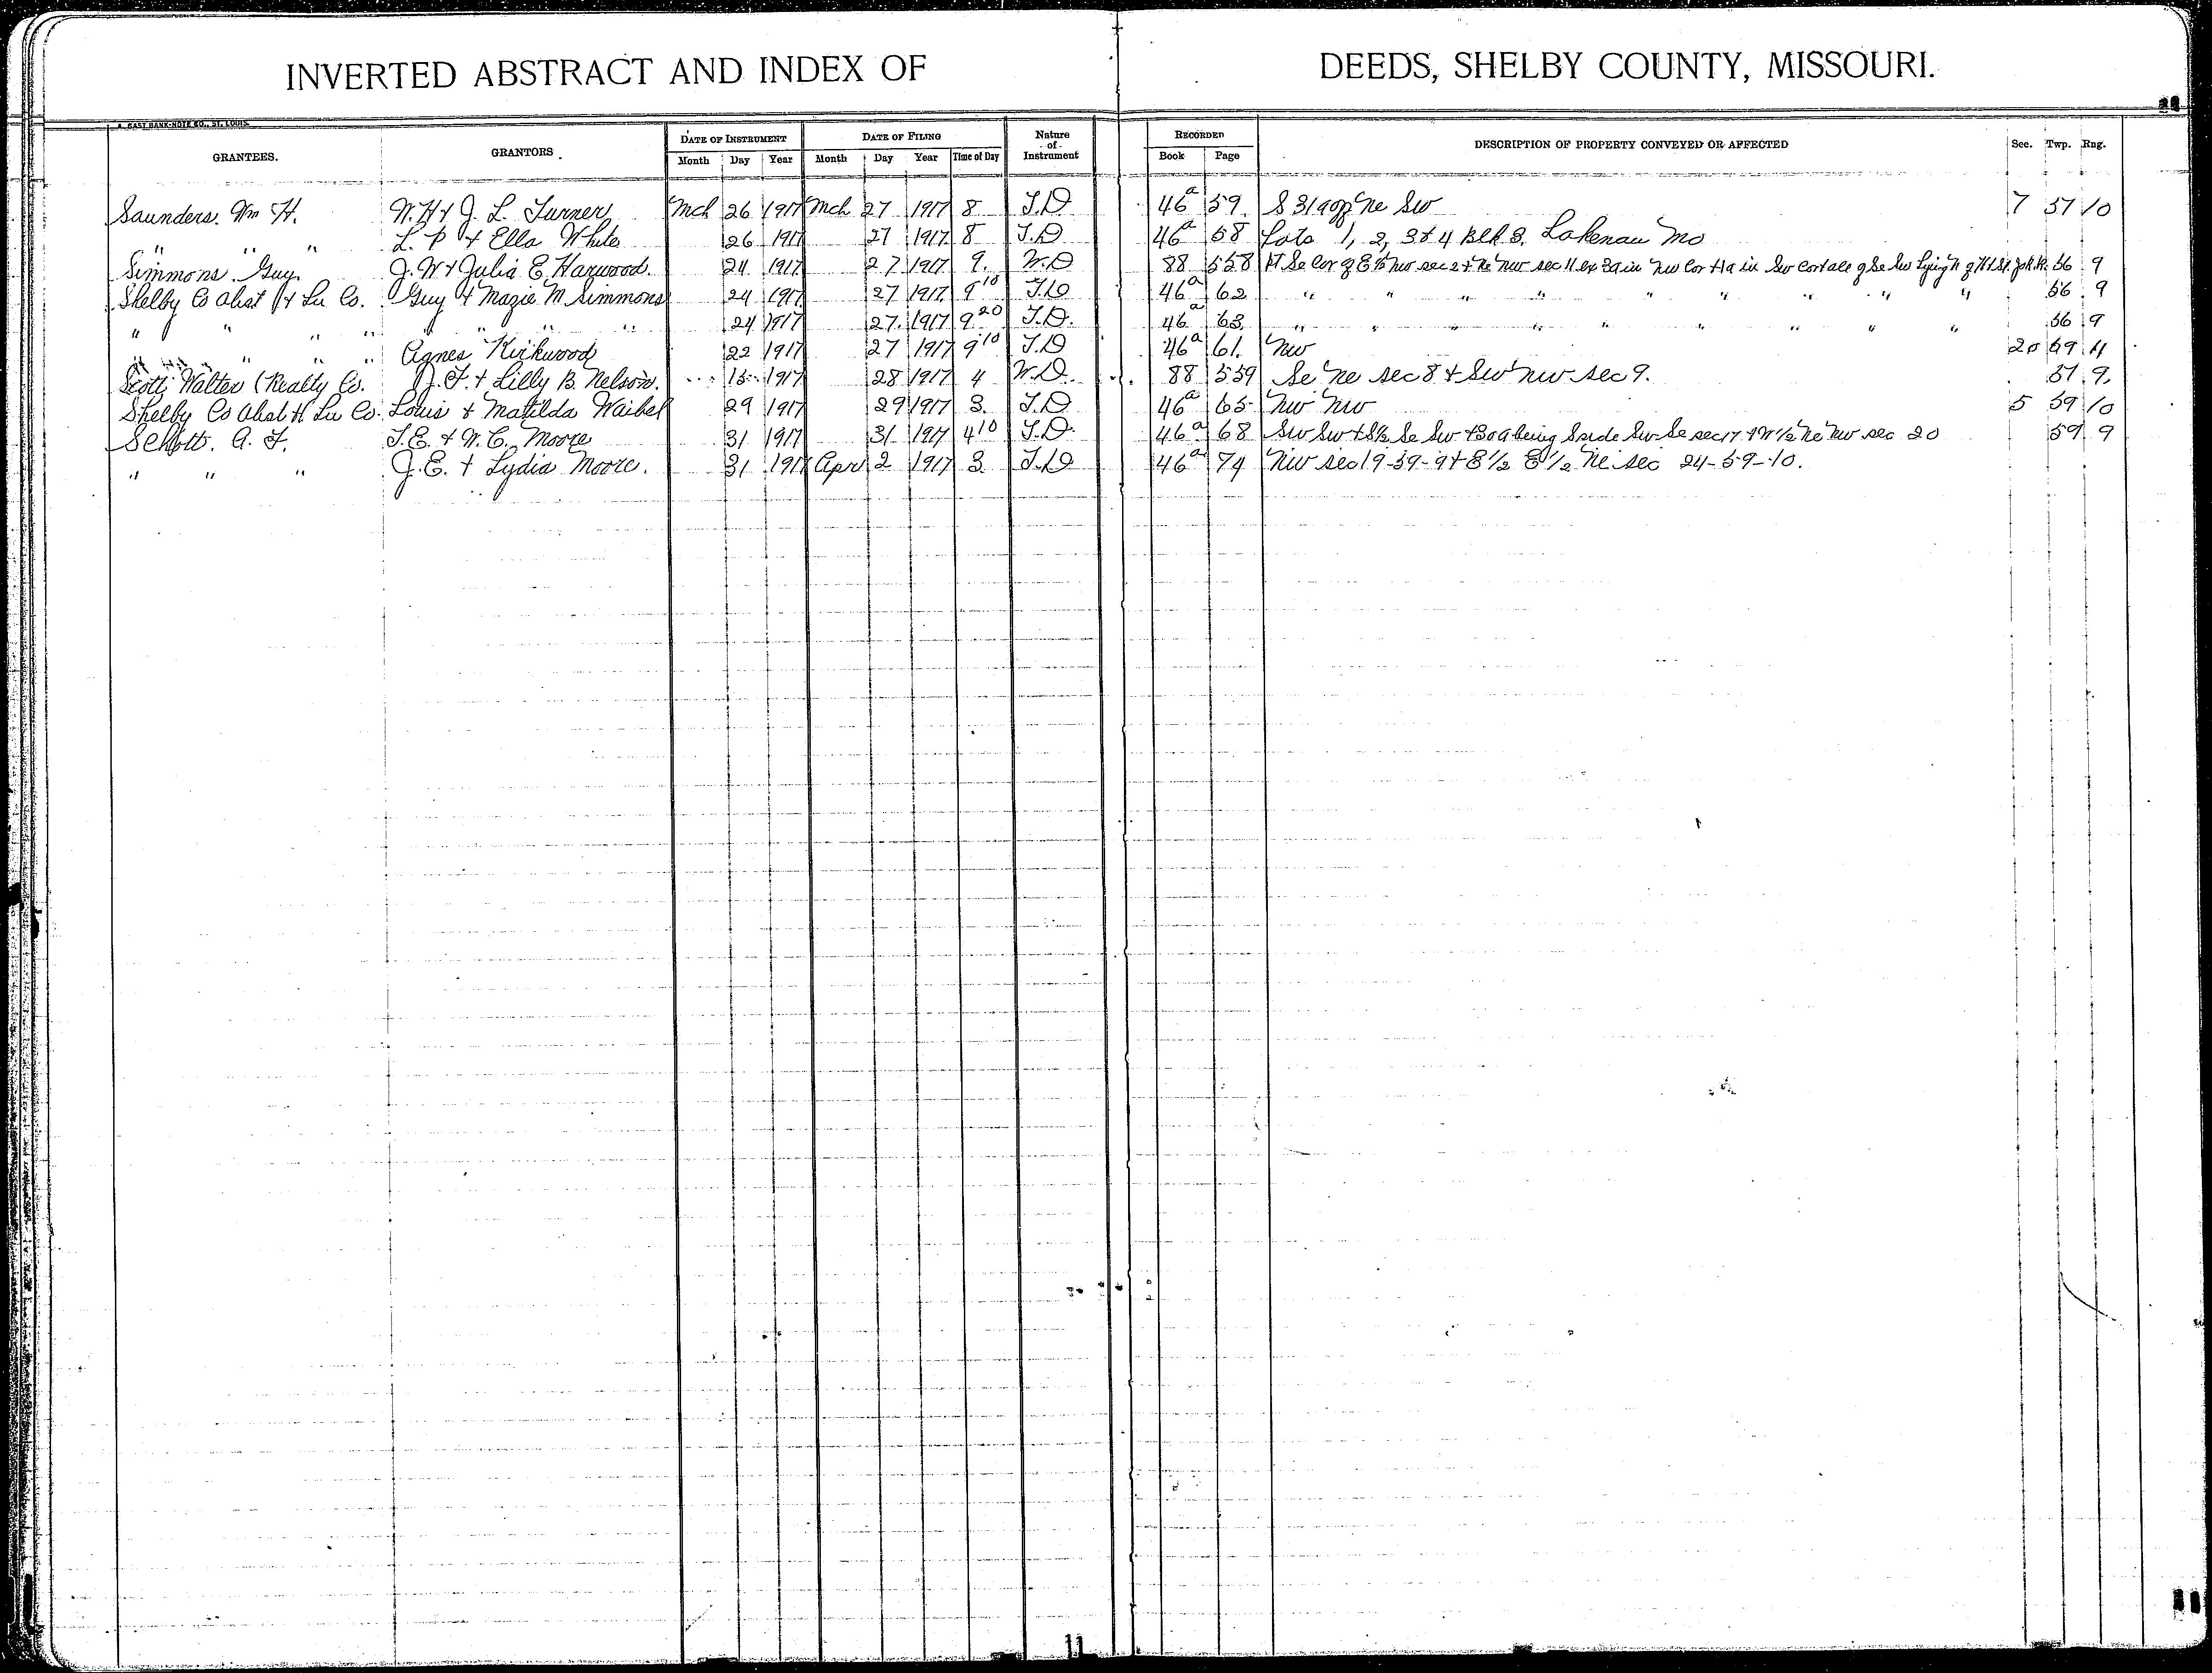 INVERTED ABSTRACT AND INDEX OF DEEDS, SHELBY COUNTY, MISSOURI.
GRANTEES. GRANTORS. DATE OF INSTRUMENT DATE OF FILING Nature of Instrument RECORDED DESCRIPTION OF PROPERTY CONVEYED OR AFFECTED Sec. Twp. Rng.
Month Day Year Month Day Year Time of Day Book Page
Saunders. Wm H. W. H & J. L. Turner Mch 26 1917 Mch 27 1917 8 T.D 46a 59 S 31a of Ne Sw 7 57 10
" " " L. P & Ella White 26 1917 27 1917 8 T.D 46a 58 Lots 1, 2, 3 & 4 Blk 3. Lakenan Mo
Simmons. Guy. J. W & Julia E. Harwood. 24 1917 27 1917 9. W.D 88 558 Se Cor of E ½ Nw sec 2 & Ne Nw sec 11 ex 3a in Nw Cor & 1a in Sw Cor & all of Se Sw Lying N of H & St. Jo R.R. 56 9
Shelby Co Abst & Ln Co. Guy & Mazie M. Simmons 24 1917 27 1917 9 10 T.D 46a 62 " " " " " " " " " 56 9
" " " " " " " 24 1917 27. 1917 9 20 T.D. 46a 63 " " " " " " " " " 56 9
" " " " Agnes Kirkwood 22 1917 27 1917 9 10 T.D 46a 61. Nw 20 59 11
Scott, Walter (Realty Co. J. F. & Lilly B. Nelson. 15 1917 28 1917 4 W.D. 88 559 Se Ne sec 8 & Sw Nw sec 9. 57 9
Shelby Co Abst & Ln Co. Louis & Matilda Waibel 29 1917 29 1917 3. T.D 46a 65 Nw Nw 5 59 10
Schott. A. F. T. E. & W. C. Moore 31 1917 31 1917 4 10 T.D. 46a 68 Sw Sw & S½ Se Sw & 30a being S side Sw Se sec 17 & N ½ Ne Nw sec 20 59 9
" " " J. E. & Lydia Moore. 31 1917 Apr 2 1917 3 T.D 46a 74 Nw sec 19-59-9 & E ½ E ½ Ne sec 24-59-10.
11